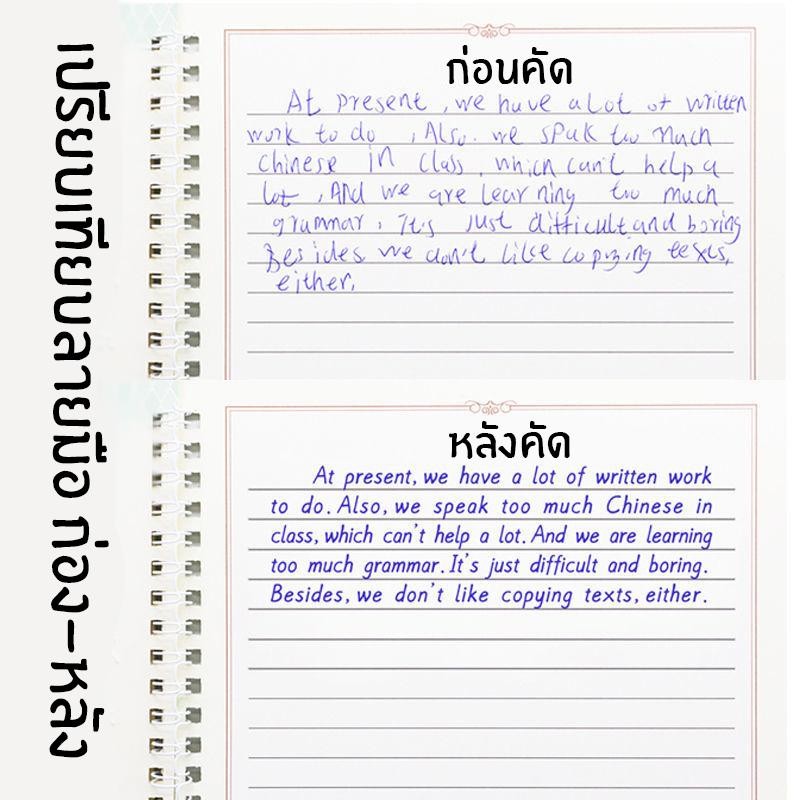 เปรียบเทียบลายมือ ก่อง-หลัง
ก่อนคัด
At present , we have a lot of written
work to do , Also. we speak too much
chinese in class , which can't help a
lot , And we are learning too much
grammar , It's just difficult and boring
Besides we don't like copying texts,
either,
หลังคัด
At present, we have a lot of written work
to do. Also, we speak too much Chinese in
class, which can't help a lot. And we are learning
too much grammar. It's just difficult and boring.
Besides, we don't like copying texts, either.